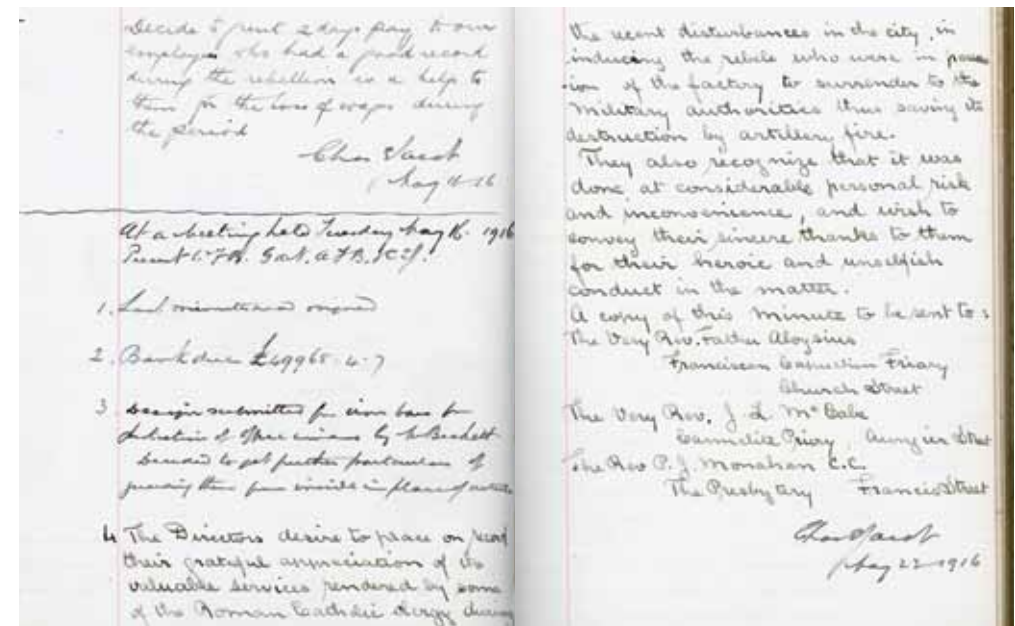 Decide to grant 2 days pay to our
employees who had a good record
during the rebellion as a help to
them for the loss of wages during
the period
Chas Jacob
May 16 16
At a Meeting held Tuesday May 16. 1916
Present
1. Last minutes read signed
2. Bank due £49965-4-7
3 Design submitted for iron bars for
protection of Office windows by Beckett
Decided to get further particulars of
from inside in place of outside
4 The Directors desire to place on record
their grateful appreciation of the
valuable services rendered by some
of the Roman Catholic clergy during
the recent disturbances in the city, in
inducing the rebels who were in possess
-ion of the factory to surrender to the
Military authorities thus saving its
destruction by artillery fire.
They also recognize that it was
done at considerable personal risk
and inconvenience, and wish to
convey their sincere thanks to them
for their heroic and unselfish
conduct in the matter.
A copy of this Minute to be sent to:
The Very Rev. Father Aloysius
Franciscan Capuchin Friary
Church Street
The Very Rev. J. L. McCabe
Carmelite Priory, Aungier Street
The Rev P. J. Monahan C.C.
The Presbytery Francis Street
Chas Jacob
May 22 1916